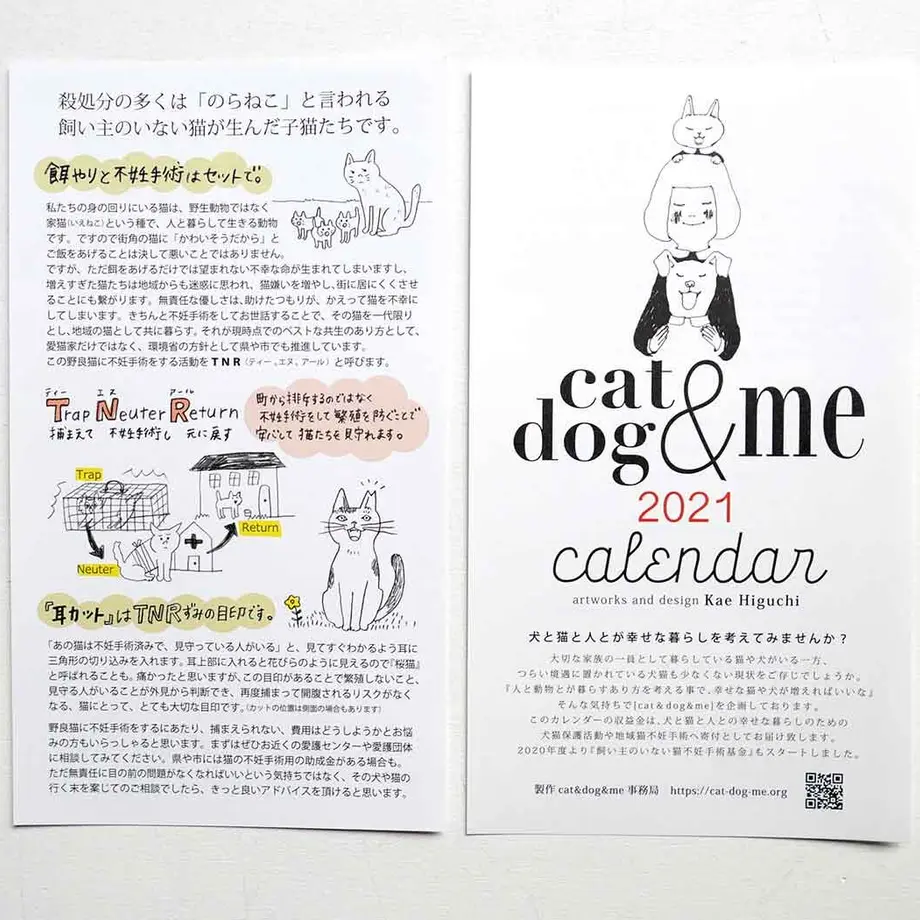 殺処分の多くは「のらねこ」と言われる
飼い主のいない猫が生んだ子猫たちです。
餌やりと不妊手術はセットで。
私たちの身の回りにいる猫は、野生動物ではなく
家猫(いえねこ)という種で、人と暮らして生きる動物
です。ですので街角の猫に「かわいそうだから」と
ご飯をあげることは決して悪いことではありません。
ですが、ただ餌をあげるだけでは望まれない不幸な命が生まれてしまいますし、
増えすぎた猫たちは地域からも迷惑に思われ、猫嫌いを増やし、街に居にくくさせ
ることにも繋がります。無責任な優しさは、助けたつもりが、かえって猫を不幸に
してしまいます。きちんと不妊手術をしてお世話することで、その猫を一代限り
とし、地域の猫として共に暮らす。それが現時点でのベストな共生のあり方として、
愛猫家だけではなく、環境省の方針として県や市でも推進しています。
この野良猫に不妊手術をする活動をTNR(ティー、エヌ、アール)と呼びます。
ティー エヌ アール
Trap Neuter Return
捕まえて 不妊手術し 元に戻す
町から排斥するのではなく
不妊手術をして繁殖を防ぐことで
安心して猫たちを見守れます。
Trap
Return
Neuter
『耳カット』はTNRずみの目印です。
「あの猫は不妊手術済みで、見守っている人がいる」と、見てすぐわかるよう耳に
三角形の切り込みを入れます。耳上部に入れると花びらのように見えるので『桜猫』
と呼ばれることも。痛かったと思いますが、この目印があることで繁殖しないこと、
見守る人がいることが外見から判断でき、再度捕まって開腹されるリスクがなく
なる、猫にとって、とても大切な目印です。(カットの位置は側面の場合もあります)
野良猫に不妊手術をするにあたり、捕まえられない、費用はどうしようかとお悩
みの方もいらっしゃると思います。まずはぜひお近くの愛護センターや愛護団体
に相談してみてください。県や市には猫の不妊手術用の助成金がある場合も。
ただ無責任に目の前の問題がなくなればいいという気持ちではなく、その犬や猫の
行く末を案じてのご相談でしたら、きっと良いアドバイスを頂けると思います。
cat
dog&me
2021
calendar
artworks and design Kae Higuchi
犬と猫と人とが幸せな暮らしを考えてみませんか?
大切な家族の一員として暮らしている猫や犬がいる一方、
つらい境遇に置かれている犬猫も少なくない現状をご存じでしょうか。
『人と動物とが暮らすあり方を考える事で、幸せな猫や犬が増えればいいな』
そんな気持ちで[cat&dog&me]を企画しております。
このカレンダーの収益金は、犬と猫と人との幸せな暮らしのための
犬猫保護活動や地域猫不妊手術へ寄付としてお届け致します。
2020年度より『飼い主のいない猫不妊手術基金』もスタートしました。
製作 cat&dog&me 事務局 https://cat-dog-me.org